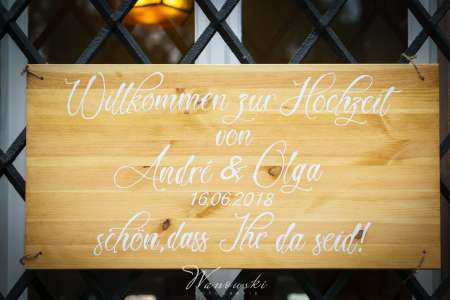 Willkommen zur Hochzeit
von
André & Olga
16.06.2018
schön, dass Ihr da seid!